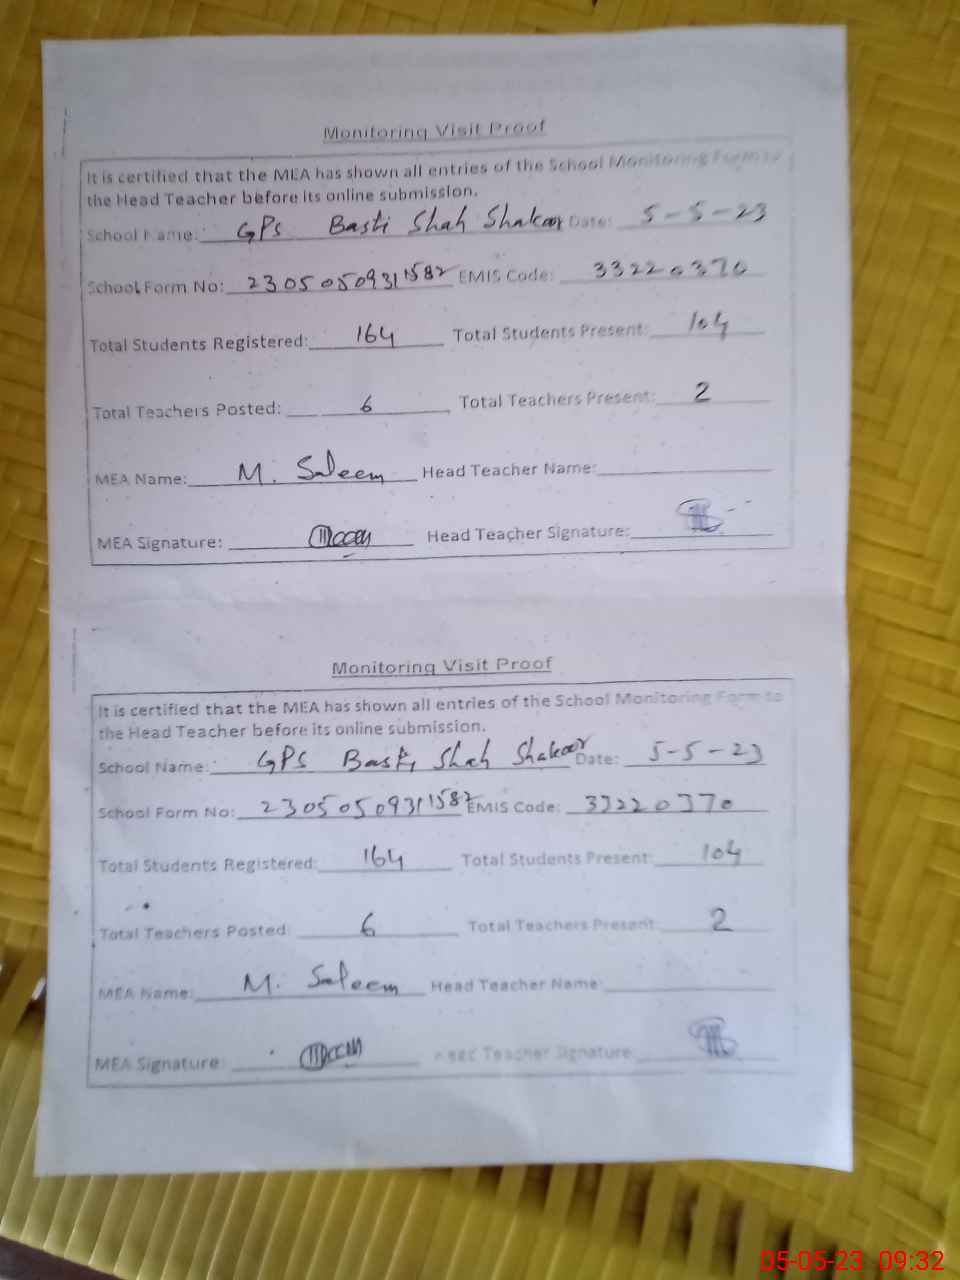 Monitoring Visit Proof
It is certified that the MEA has shown all entries of the School Monitoring Form to
the Head Teacher before its online submission.
School Name: GPS Basti Shah Shakoor Date: 5-5-23
School Form No: 23050509311582 EMIS Code: 33220370
Total Students Registered: 164 Total Students Present: 104
Total Teachers Posted: 6 Total Teachers Present: 2
MEA Name: M. Saleem Head Teacher Name:
MEA Signature: Head Teacher Signature:
Monitoring Visit Proof
It is certified that the MEA has shown all entries of the School Monitoring Form to
the Head Teacher before its online submission.
School Name: GPS Basti Shah Shakoor Date: 5-5-23
School Form No: 23050509311582 EMIS Code: 33220370
Total Students Registered: 164 Total Students Present: 104
Total Teachers Posted: 6 Total Teachers Present: 2
MEA Name: M. Saleem Head Teacher Name:
MEA Signature: Head Teacher Signature:
05-05-23 09:32